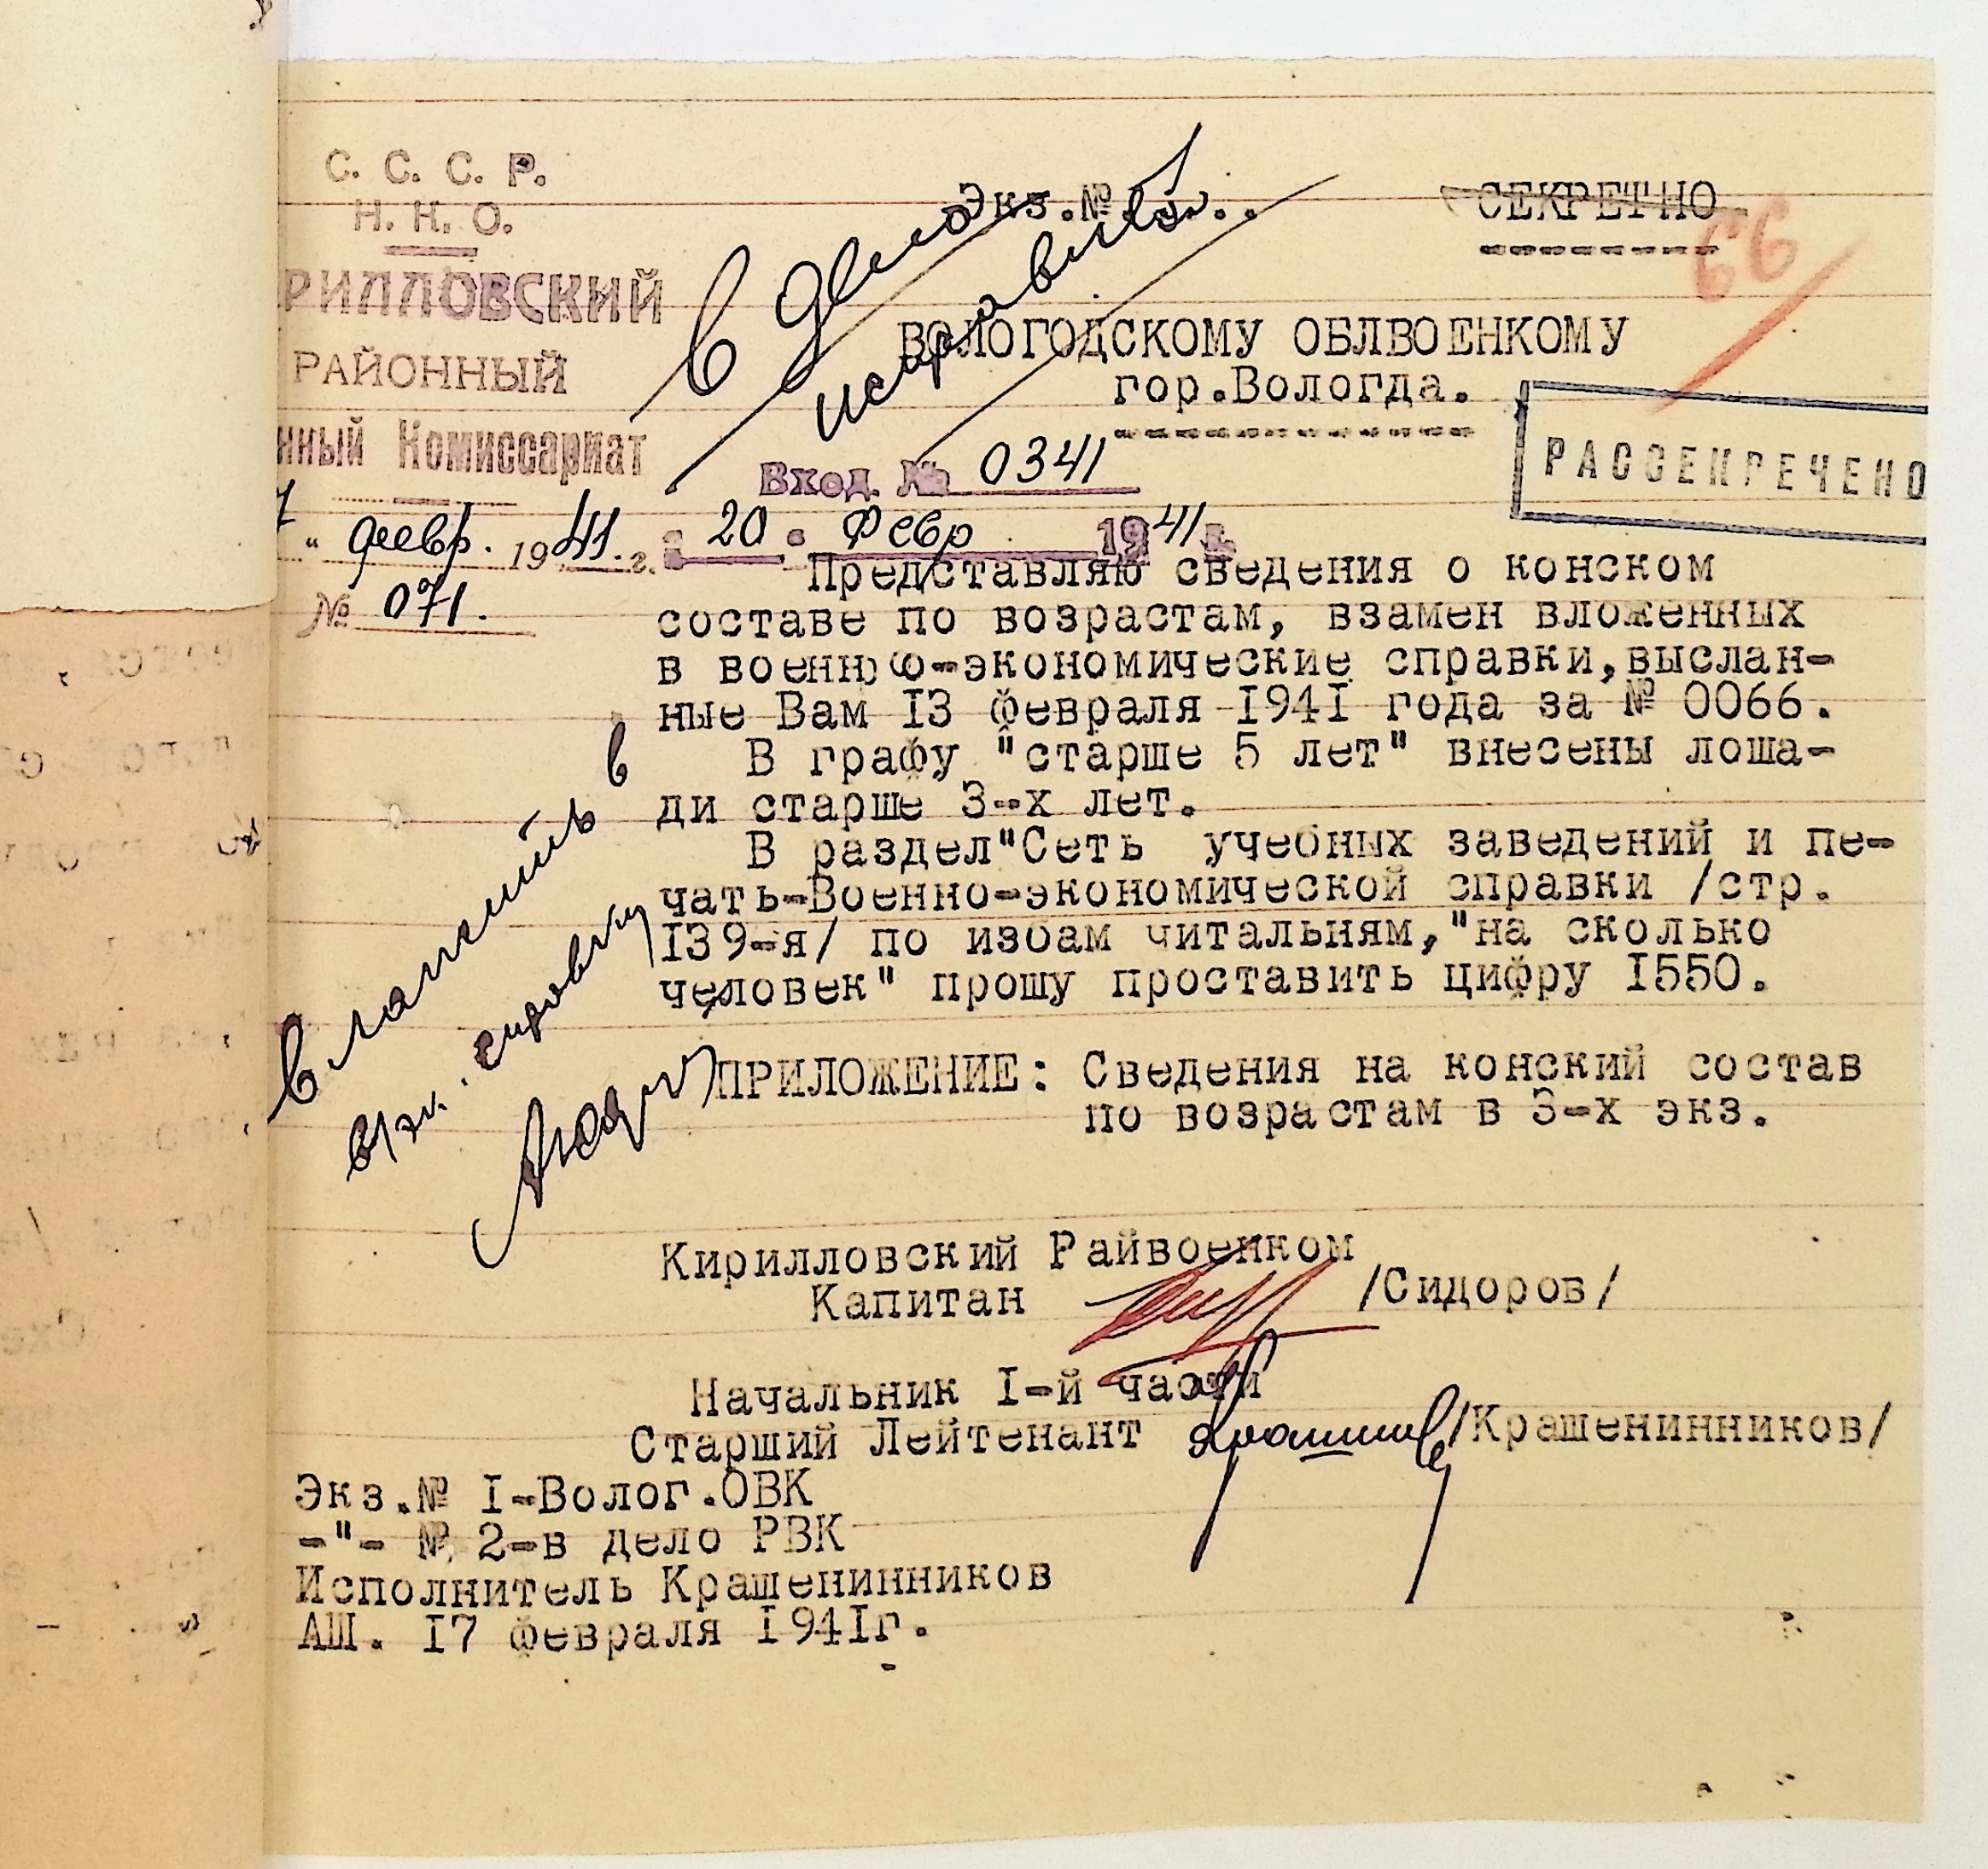 С. С. С. Р.
Н. К. О.
РИЛЛОВСКИЙ
РАЙОННЫЙ
нный Комиссариат
7 " февр. 1941 г.
№ 071.
Экз.№ 1..
СЕКРЕТНО
66
В дело
исправлено
ВОЛОГОДСКОМУ ОБЛВОЕНКОМУ
гор.Вологда.
РАССЕКРЕЧЕНО
Вход. № 0341
" 20 " Февр 1941 г.
Представляю сведения о конском
составе по возрастам, взамен вложенных
в военно-экономические справки,выслан-
ные Вам I3 февраля I94I года за № 0066.
В графу "старше 5 лет" внесены лоша-
ди старше 3-х лет.
В раздел"Сеть учебных заведений и пе-
чать-Военно-экономической справки /стр.
I39-я/ по избам читальням,"на сколько
человек" прошу проставить цифру I550.
в
в/эк. справку
ПРИЛОЖЕНИЕ: Сведения на конский состав
по возрастам в 3-х экз.
Кирилловский Райвоенком
Капитан /Сидоров/
Начальник I-й части
Старший Лейтенант /Крашенинников/
Экз.№ I-Волог.ОВК
-"- № 2-в дело РВК
Исполнитель Крашенинников
АШ. I7 февраля I94Iг.